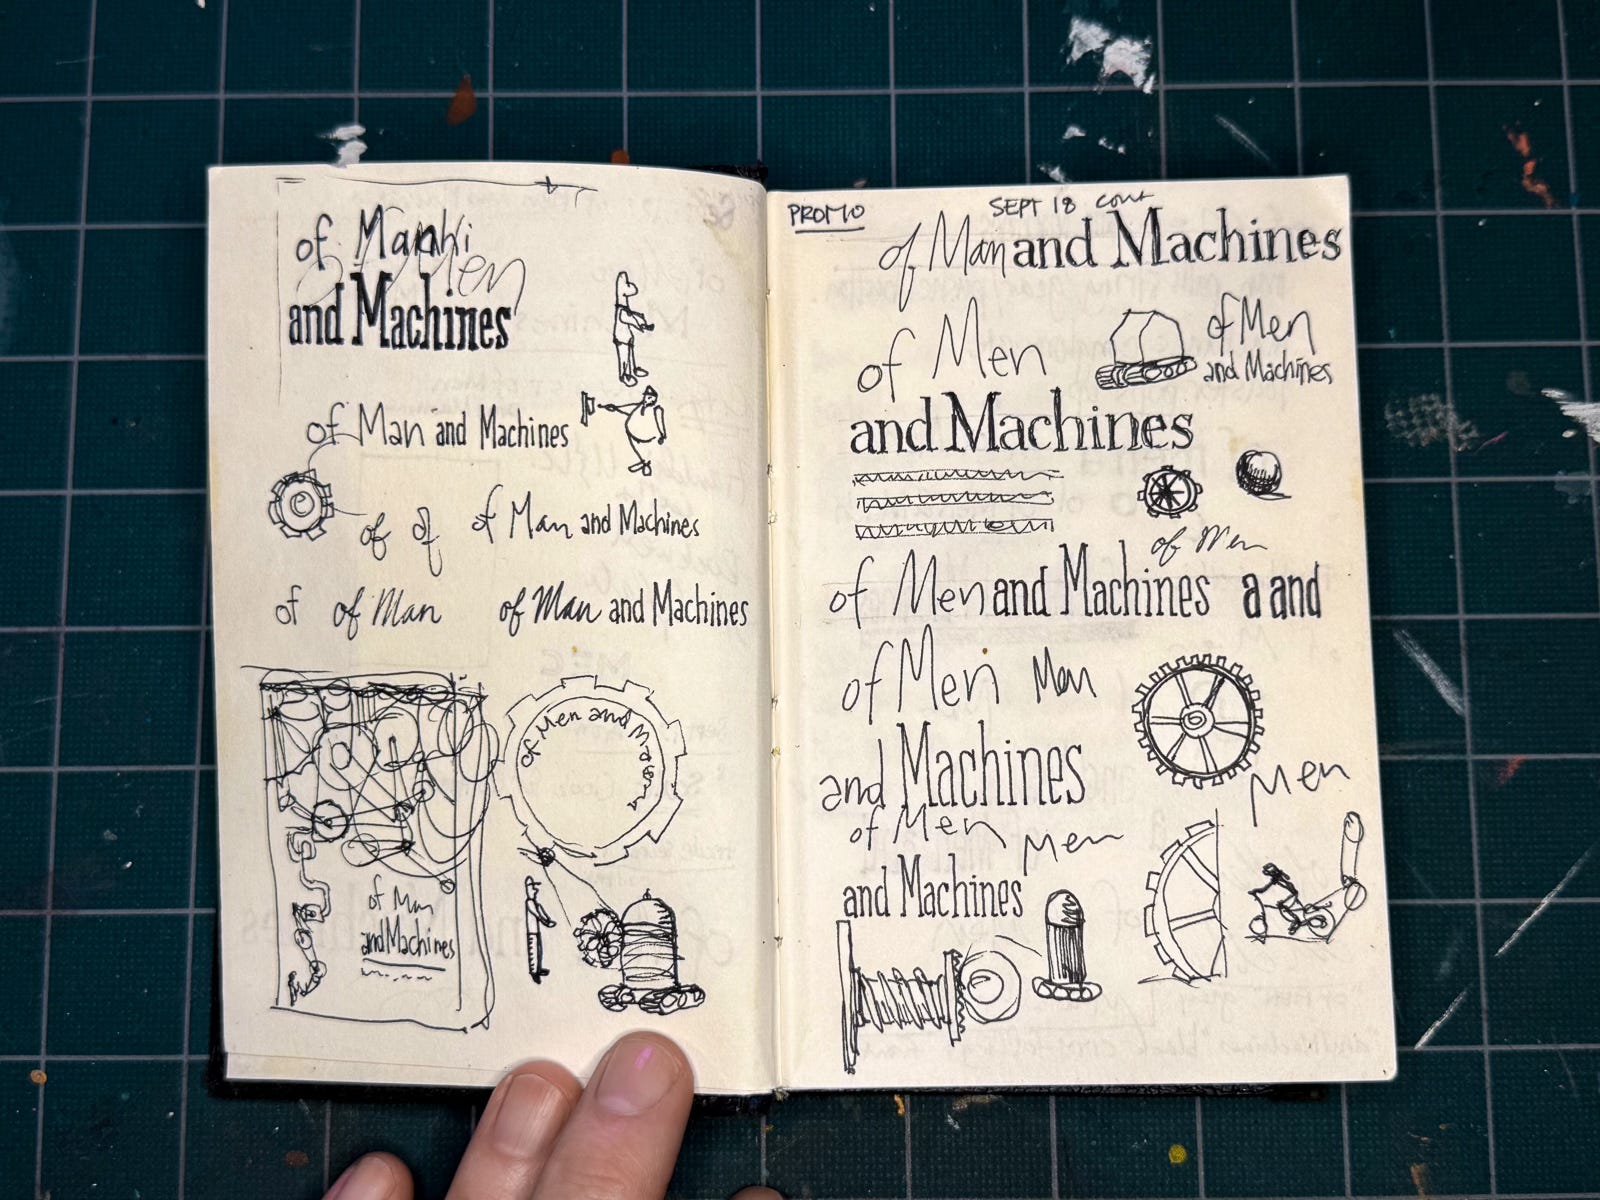 of Man
Men
and Machines
of Man and Machines
of of of Man and Machines
of of Man of Man and Machines
of Men and Ma
of Man
and Machines
PROMO SEPT 18 cont
of Man and Machines
of Men
and Machines
of Men
and Machines
of Men
of Men and Machines a and
of Men Men
and Machines
Men
of Men Men
and Machines